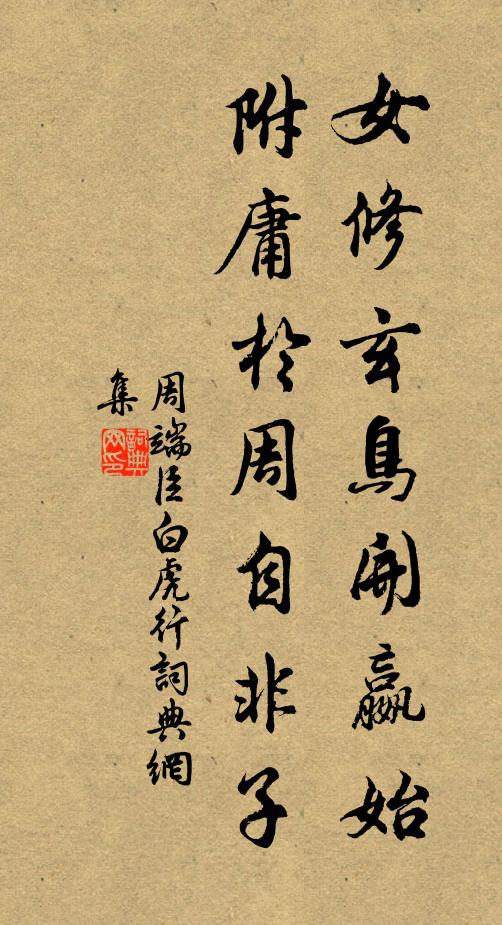 女修玄鳥開嬴始
附庸於周自非子
周端臣白虎行詞典網
集
詞典
网印